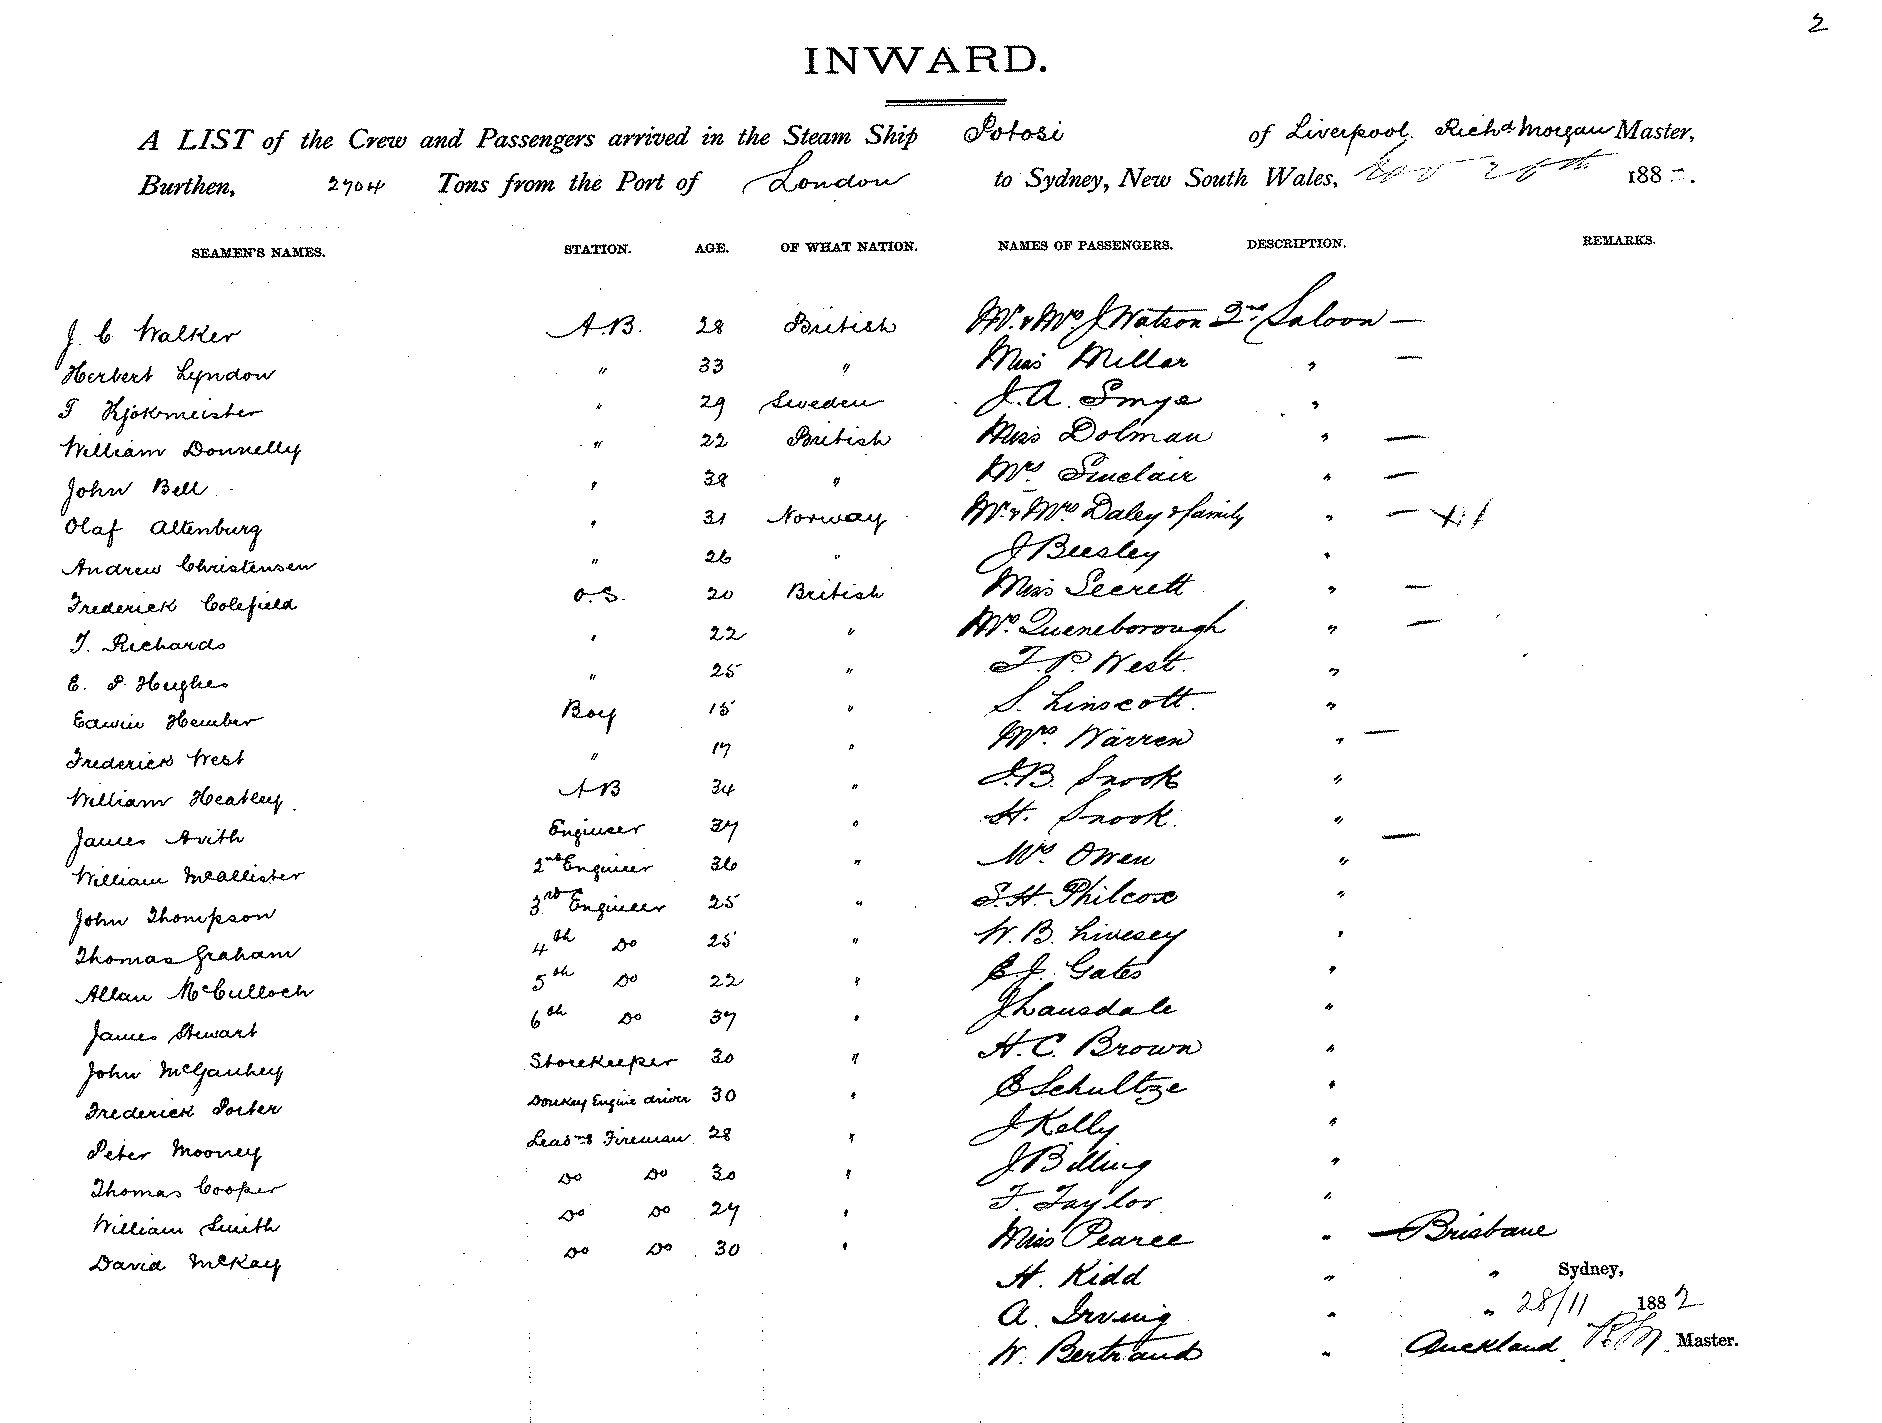 2
INWARD.
A LIST of the Crew and Passengers arrived in the Steam Ship Potosi of Liverpool, Richd Morgan Master,
Burthen, 2704 Tons from the Port of London to Sydney, New South Wales, Nov 28th 188
SEAMEN'S NAMES. STATION. AGE. OF WHAT NATION. NAMES OF PASSENGERS. DESCRIPTION. REMARKS.
J. C Walker A.B. 28 British Mr. & Mrs J Watson 2nd Saloon —
Herbert Lyndon " 33 " Miss Millar " —
T Kjokmeister " 29 Sweden J. A. Smye "
William Donnelly " 22 British Miss Dolman " —
John Bell " 38 " Mrs Sinclair " —
Olaf Altenburg " 31 Norway Mr. & Mrs Daley & family " —
Andrew Christensen " 26 " J Beesley "
Frederick Colefield O.S. 20 British Miss Secrett " —
T. Richards " 22 " Mrs. Queneborough " —
E. P. Hughes " 25 " T. P. West. "
Edwin Hember Boy 15 " S. Linscott. "
Frederick West " 17 " Mrs. Warren " —
William Heatley A B 34 " J. B. Snook "
James Avith Engineer 37 " H. Snook. "
William McAllister 2nd Engineer 36 " Mrs. Owen " —
John Thompson 3rd Engineer 25 " S. H. Philcox "
Thomas Graham 4th Do 25 " W. B. Livesey "
Allan McCulloch 5th Do 22 " E J. Gates "
James Stewart 6th Do 37 " J Lansdale "
John McGauhey Storekeeper 30 " H. C. Brown "
Frederick Porter Donkey Engine driver 30 " E Schultze "
Peter Mooney Leadng Fireman 28 " J Kelly "
Thomas Cooper Do Do 30 " J Billing "
William Smith Do Do 27 " F. Taylor "
David McKay Do Do 30 " Miss Pearce " — Brisbane
H. Kidd " " Sydney,
A. Irving " " 28/11 1882
W. Bertrand " Auckland. R M Master.